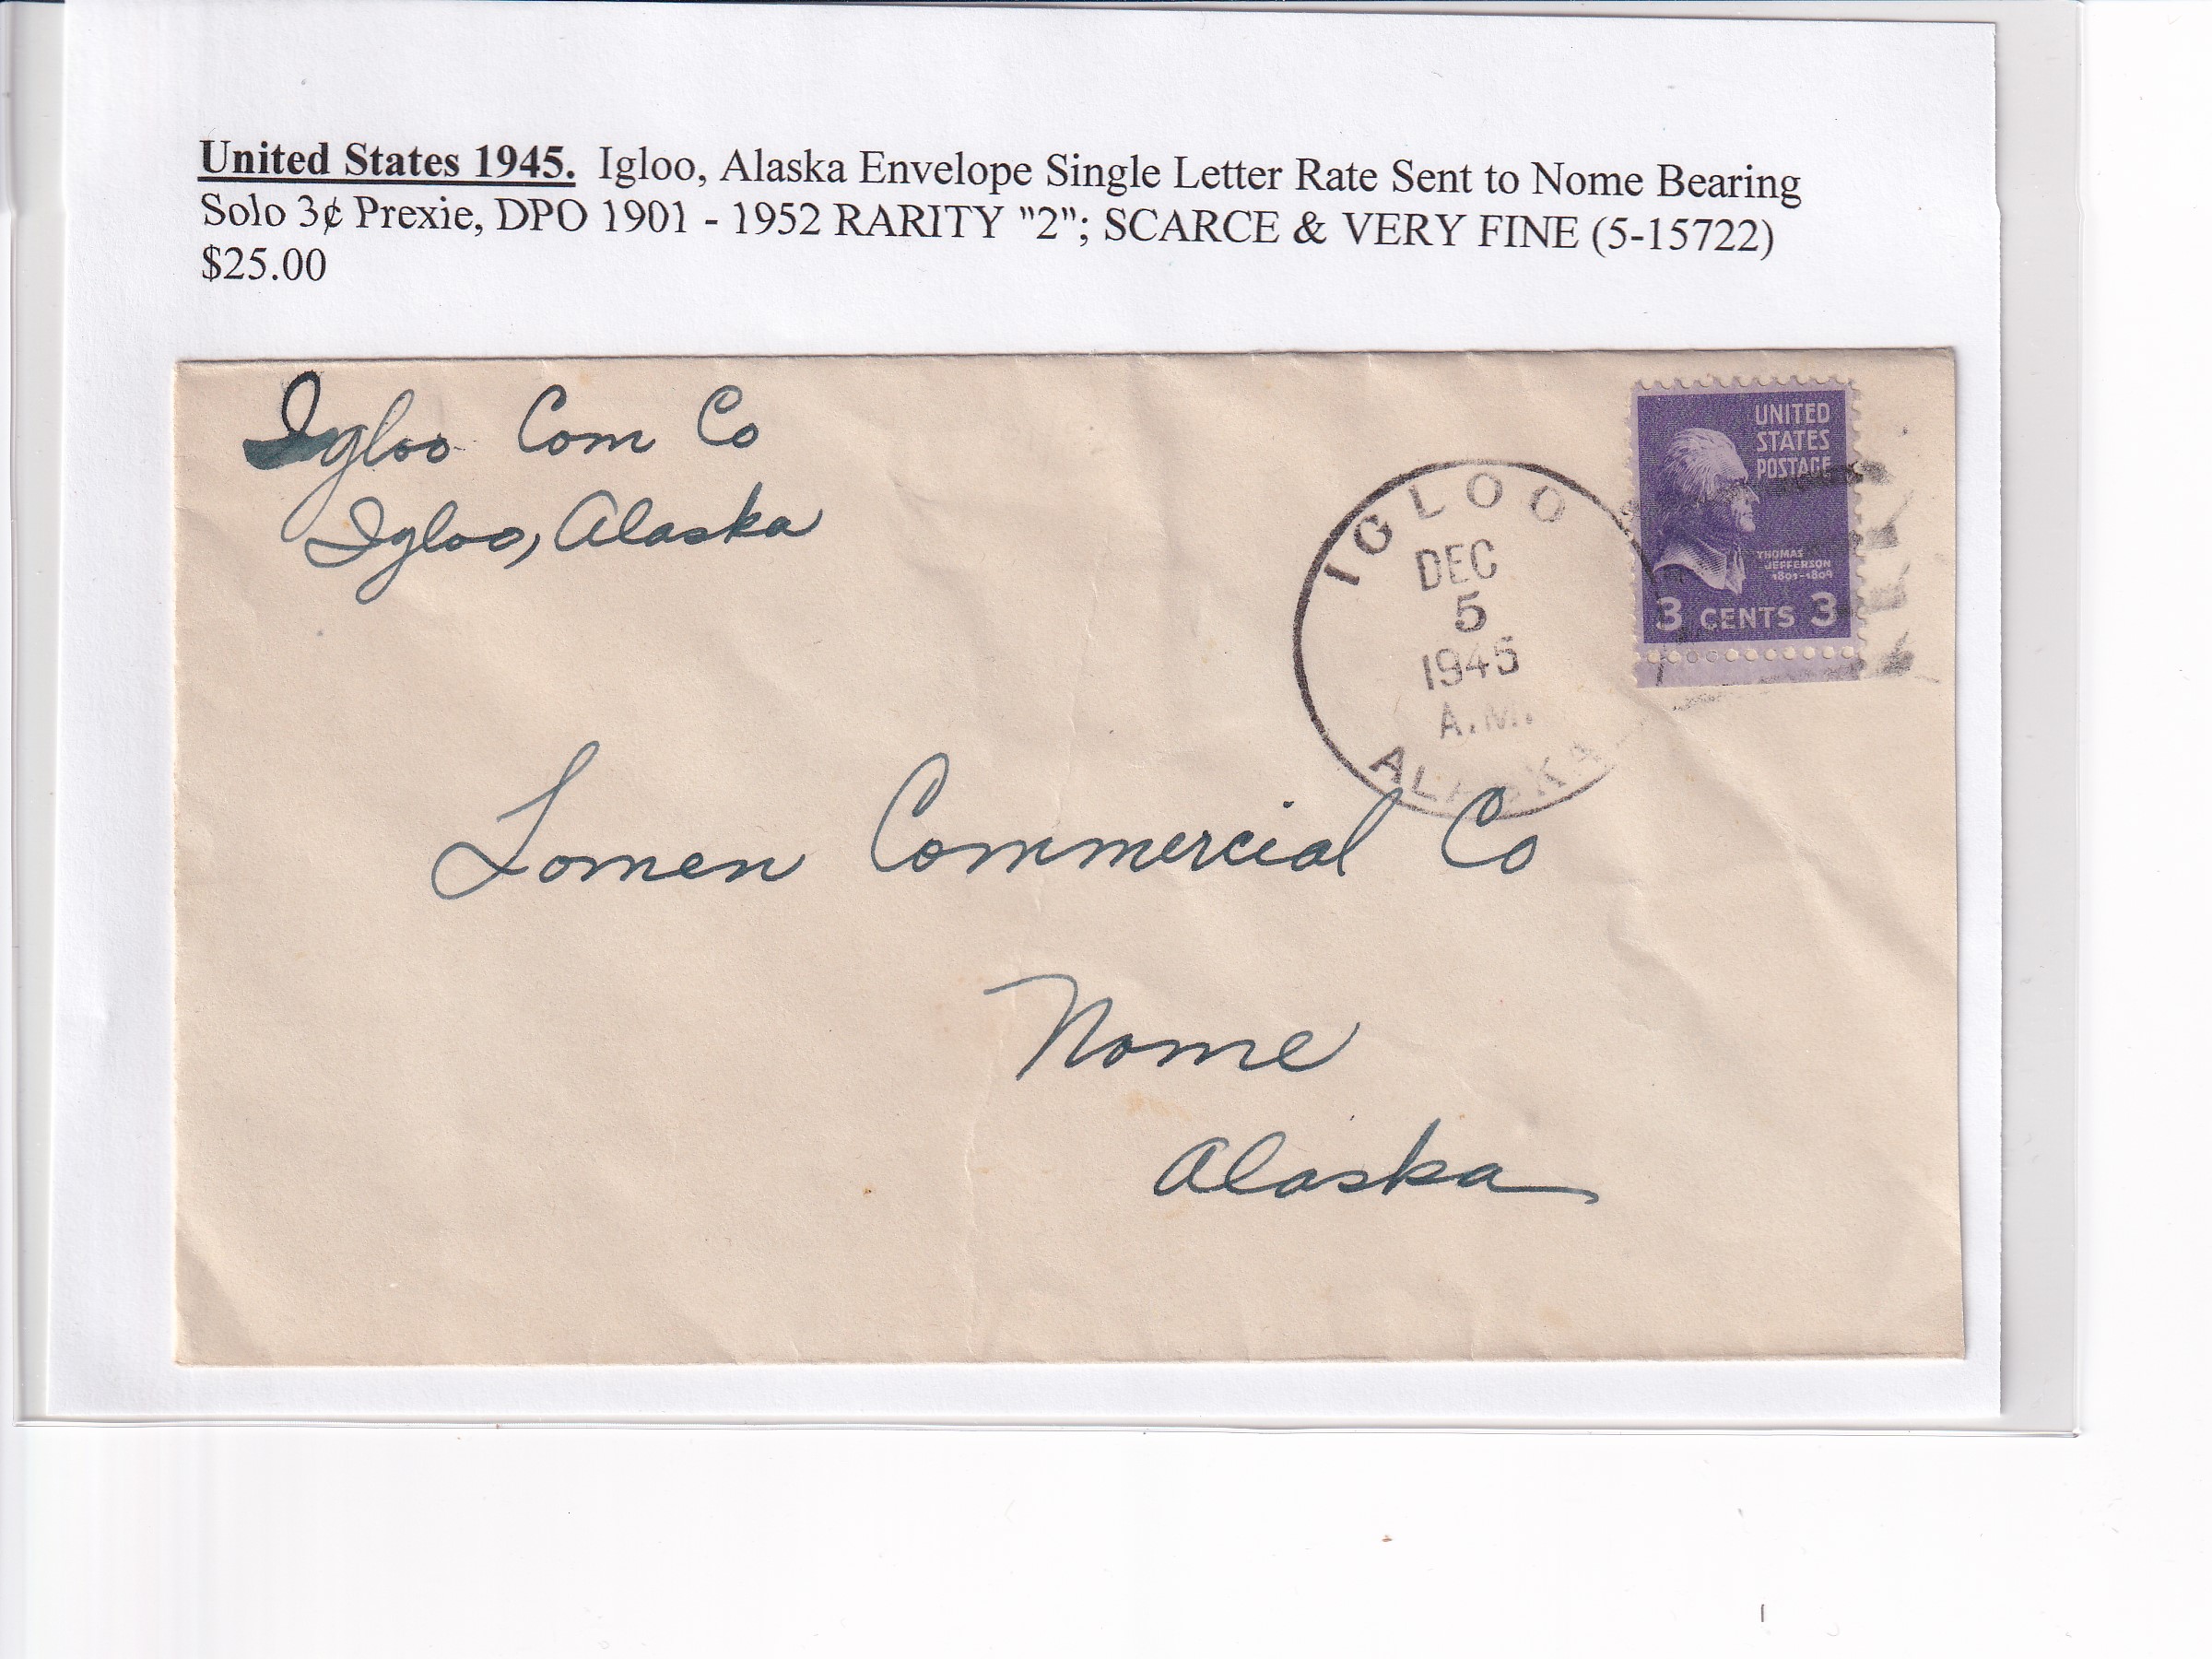 United States 1945. Igloo, Alaska Envelope Single Letter Rate Sent to Nome Bearing
Solo 3¢ Prexie, DPO 1901 - 1952 RARITY "2"; SCARCE & VERY FINE (5-15722)
$25.00
Igloo Com Co
Igloo, Alaska
IGLOO
DEC
5
1945
A.M.
ALASKA
UNITED
STATES
POSTAGE
THOMAS
JEFFERSON
1801-1809
3 CENTS 3
Lomen Commercial Co
Nome
Alaska